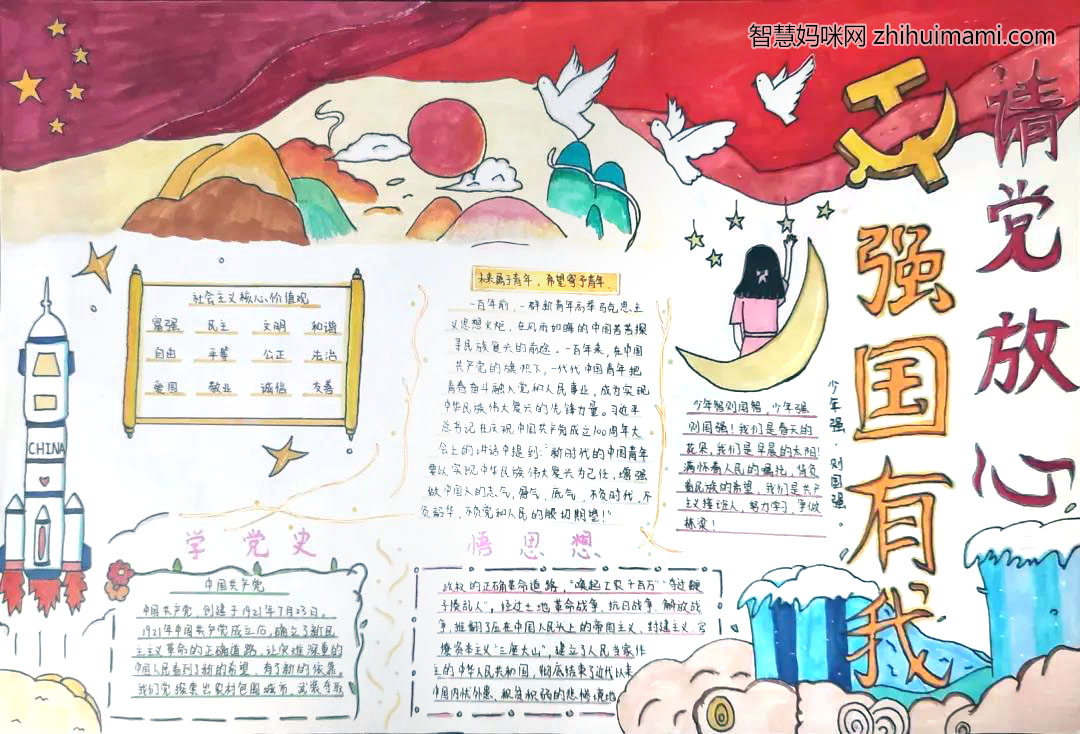 智慧妈咪网 zhihuimami.com
请党放心
强国有我
少年强·则国强·
CHINA
社会主义核心价值观
富强 民主 文明 和谐
自由 平等 公正 法治
爱国 敬业 诚信 友善
未来属于青年，希望寄予青年
一百年前，一群新青年高举马克思主
义思想火炬，在风雨如晦的中国苦苦探
寻民族复兴的前途。一百年来，在中国
共产党的旗帜下，一代代中国青年把
青春奋斗融入党和人民事业，成为实现
中华民族伟大复兴的先锋力量。习近平
总书记在庆祝中国共产党成立100周年大
会上的讲话中提到："新时代的中国青年
要以实现中华民族伟大复兴为己任，增强
做中国人的志气，骨气，底气，不负时代，不
负韶华，不负党和人民的殷切期望！"
少年智则国智，少年强
则国强！我们是春天的
花朵，我们是早晨的太阳！
满怀着人民的嘱托，背负
着民族的希望，我们是共产
主义接班人，努力学习，争做
栋梁！
学党史
中国共产党
中国共产党，创建于1921年7月23日。
1921年中国共产党成立后，确立了新民
主主义革命的正确道路，让灾难深重的
中国人民看到了新的希望，有了新的依靠。
我们党探索出农村包围城市，武装夺取
悟思想
政权的正确革命道路，"唤起工农千百万""夺过鞭
子揍敌人"，经过土地革命战争、抗日战争、解放战
争，推翻了压在中国人民头上的帝国主义、封建主义、官
僚资本主义"三座大山"，建立了人民当家作
主的中华人民共和国，彻底结束了近代以来
中国内忧外患、积贫积弱的悲惨境地